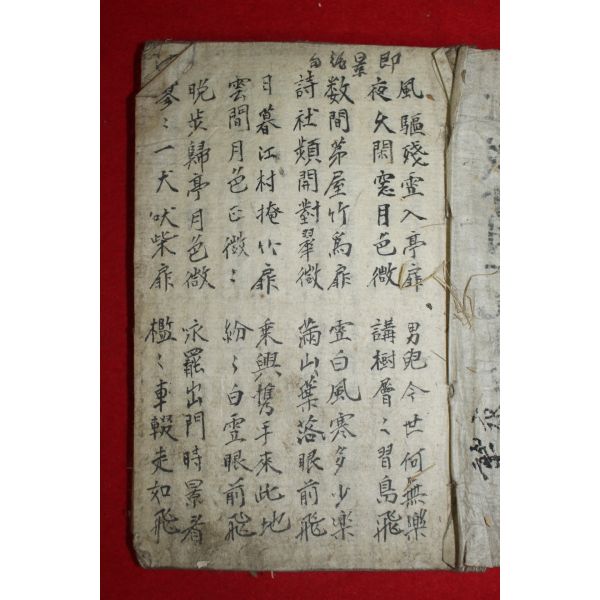 即景
風驅殘雪入亭扉 男兒今世何無樂
夜久閑窓月色微 講樹層々習鳥飛
数間茅屋竹爲扉 雪白風寒多少樂
詩社頻開對翠微 滿山葉落眼前飛
日暮江村掩竹扉 乘興携手來此地
雲間月色正微々 紛々白雪眼前飛
晩步歸亭月色微 咏罷出門時景看
々一犬吠柴扉 檻々車輟走如飛